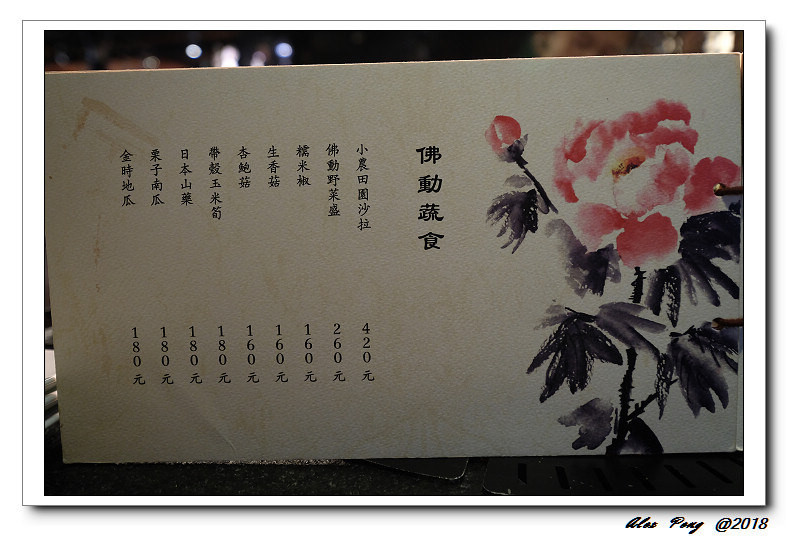 佛動蔬食
小農田園沙拉 420元
佛動野菜盛 260元
糯米椒 160元
生香菇 160元
杏鮑菇 160元
帶殼玉米筍 180元
日本山藥 180元
栗子南瓜 180元
金時地瓜 180元
Alex Pong @2018